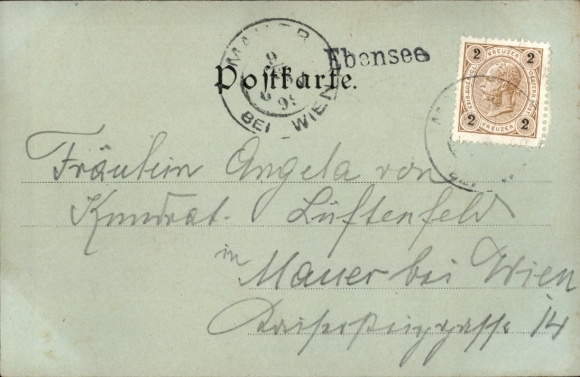 MAUER
9
99
BEI WIEN
Ebensee
2 KREUZER 2
2 KREUZER 2
Postkarte.
Fräulein Angela von
Kundrat. Lüftenfeld
in
Mauer bei Wien
14